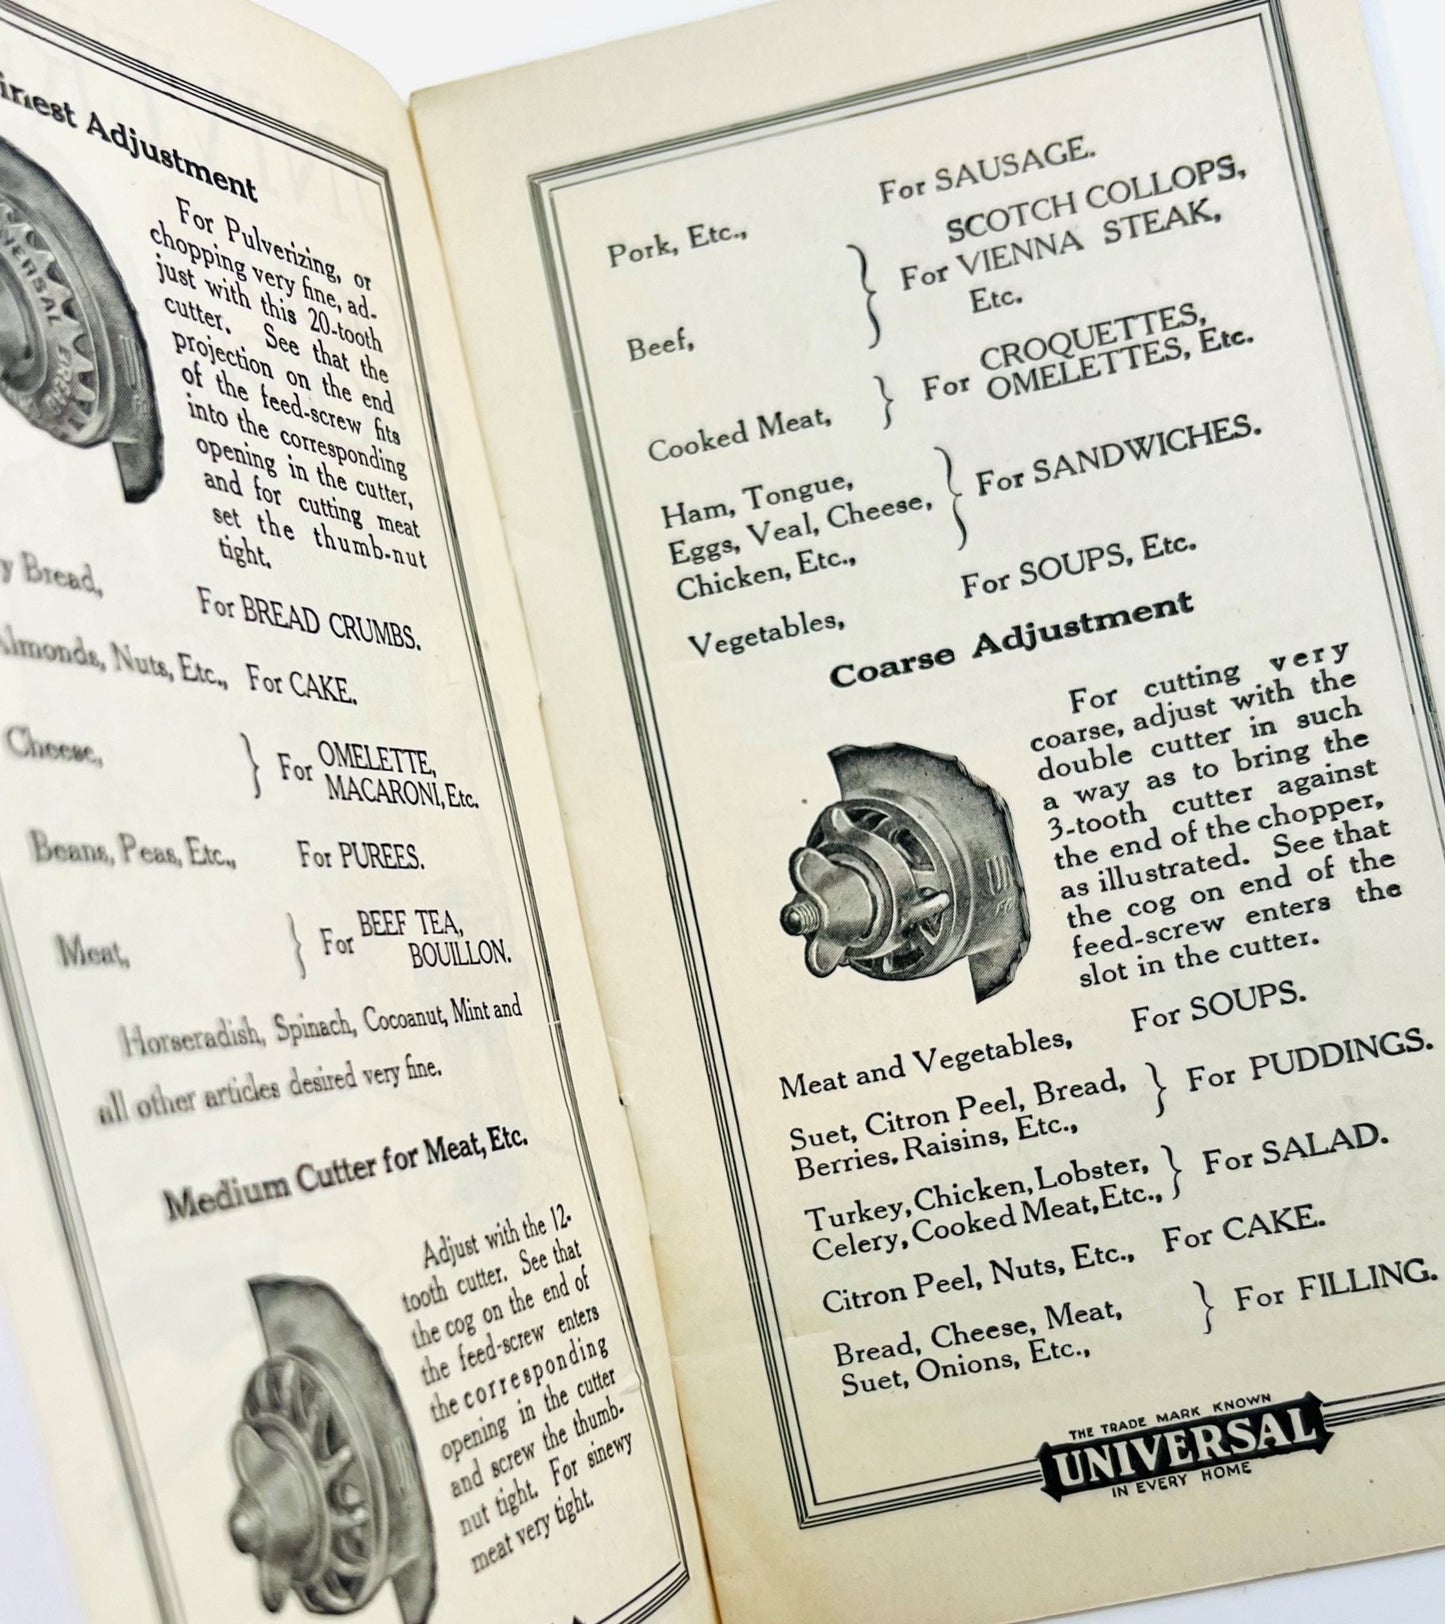 inest Adjustment
UNIVERSAL
For Pulverizing, or
chopping very fine, ad-
just with this 20-tooth
cutter. See that the
projection on the end
of the feed-screw fits
into the corresponding
opening in the cutter,
and for cutting meat
set the thumb-nut
tight.
y Bread, For BREAD CRUMBS.
Almonds, Nuts, Etc., For CAKE.
Cheese, } For OMELETTE,
MACARONI, Etc.
Beans, Peas, Etc., For PUREES.
Meat, } For BEEF TEA,
BOUILLON.
Horseradish, Spinach, Cocoanut, Mint and
all other articles desired very fine.
Medium Cutter for Meat, Etc.
Adjust with the 12-
tooth cutter. See that
the cog on the end of
the feed-screw enters
the corresponding
opening in the cutter
and screw the thumb-
nut tight. For sinewy
meat very tight.
Pork, Etc., For SAUSAGE.
Beef, } For SCOTCH COLLOPS,
VIENNA STEAK,
Etc.
Cooked Meat, } For CROQUETTES,
OMELETTES, Etc.
Ham, Tongue,
Eggs, Veal, Cheese, } For SANDWICHES.
Chicken, Etc.,
Vegetables, For SOUPS, Etc.
Coarse Adjustment
For cutting very
coarse, adjust with the
double cutter in such
a way as to bring the
3-tooth cutter against
the end of the chopper,
as illustrated. See that
the cog on end of the
feed-screw enters the
slot in the cutter.
UN
Meat and Vegetables, For SOUPS.
Suet, Citron Peel, Bread, } For PUDDINGS.
Berries, Raisins, Etc.,
Turkey, Chicken, Lobster, } For SALAD.
Celery, Cooked Meat, Etc.,
Citron Peel, Nuts, Etc., For CAKE.
Bread, Cheese, Meat, } For FILLING.
Suet, Onions, Etc.,
THE TRADE MARK KNOWN
UNIVERSAL
IN EVERY HOME